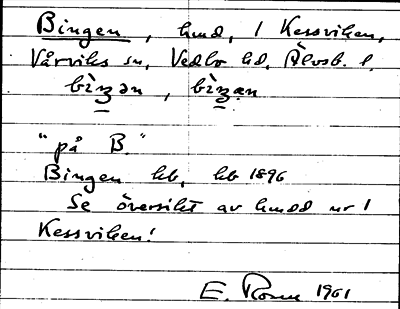 Bingen, hmd, 1 Kessviken,
Vårviks sn, Vedbo hd, Älvsb. l.
bìŋən, bìŋən
"på B."
Bingen hb, hb 1896
Se översikt av hmdd nr 1
Kessviken!
E. Rosen 1961